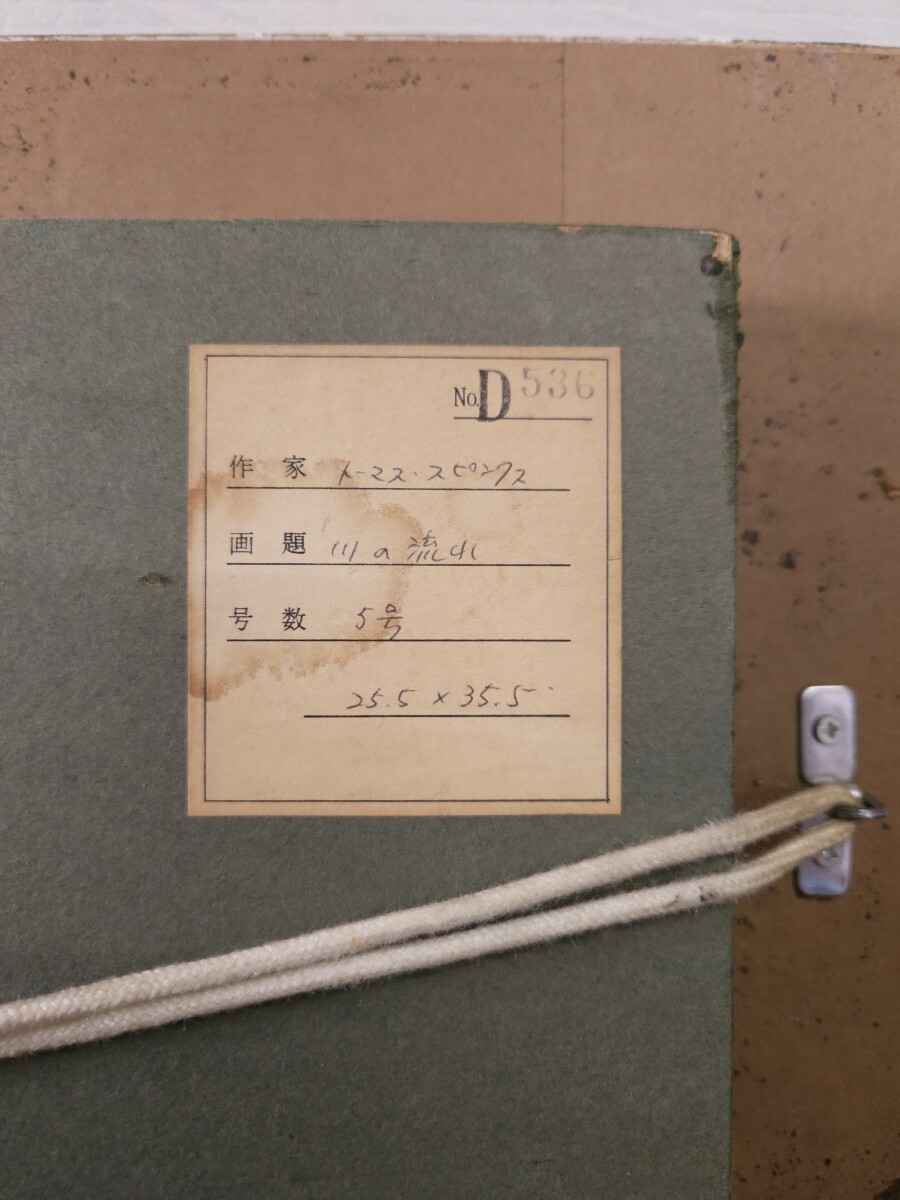 No. D 536
作家 トーマス・スピンクス
画題 川の流れ
号数 5号
25.5 × 35.5